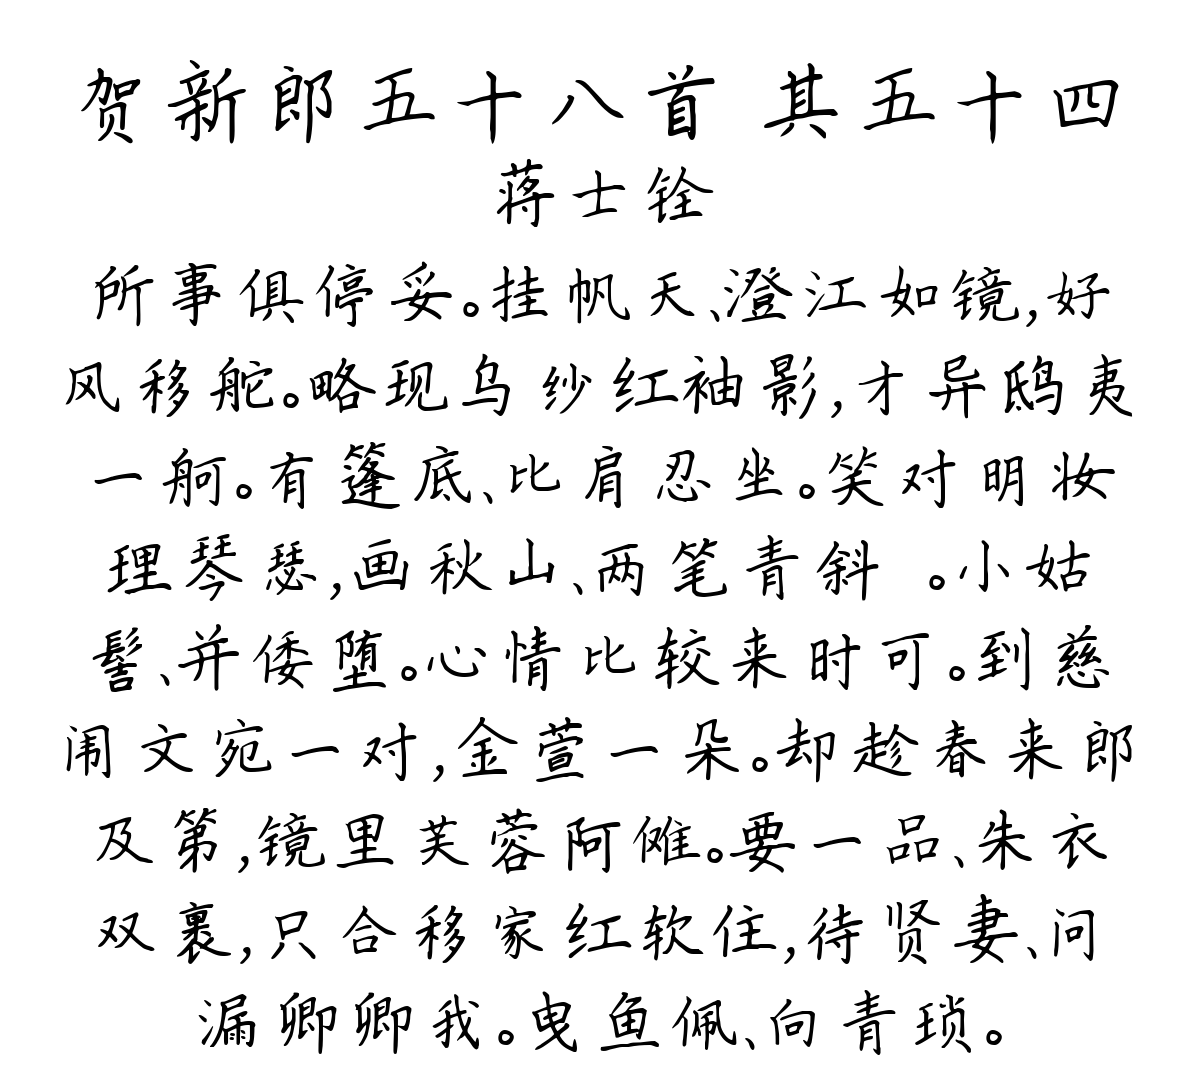 贺新郎五十八首 其五十四
蒋士铨
所事俱停妥。挂帆天、澄江如镜,好
风移舵。略现乌纱红袖影,才异鸱夷
一舸。有篷底、比肩忍坐。笑对明妆
理琴瑟,画秋山、两笔青斜 。小姑
髻、并倭堕。心情比较来时可。到慈
闱文宛一对,金萱一朵。却趁春来郎
及第,镜里芙蓉阿傩。要一品、朱衣
双裹,只合移家红软住,待贤妻、问
漏卿卿我。曳鱼佩、向青琐。